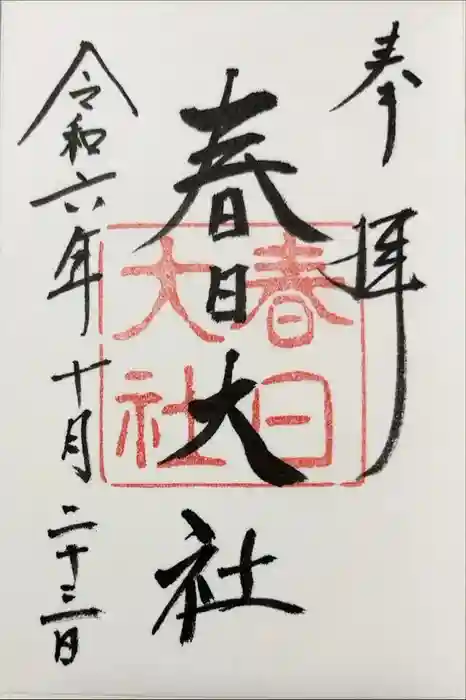 奉拝
春日大社
春日
大社
令和六年十月二十三日